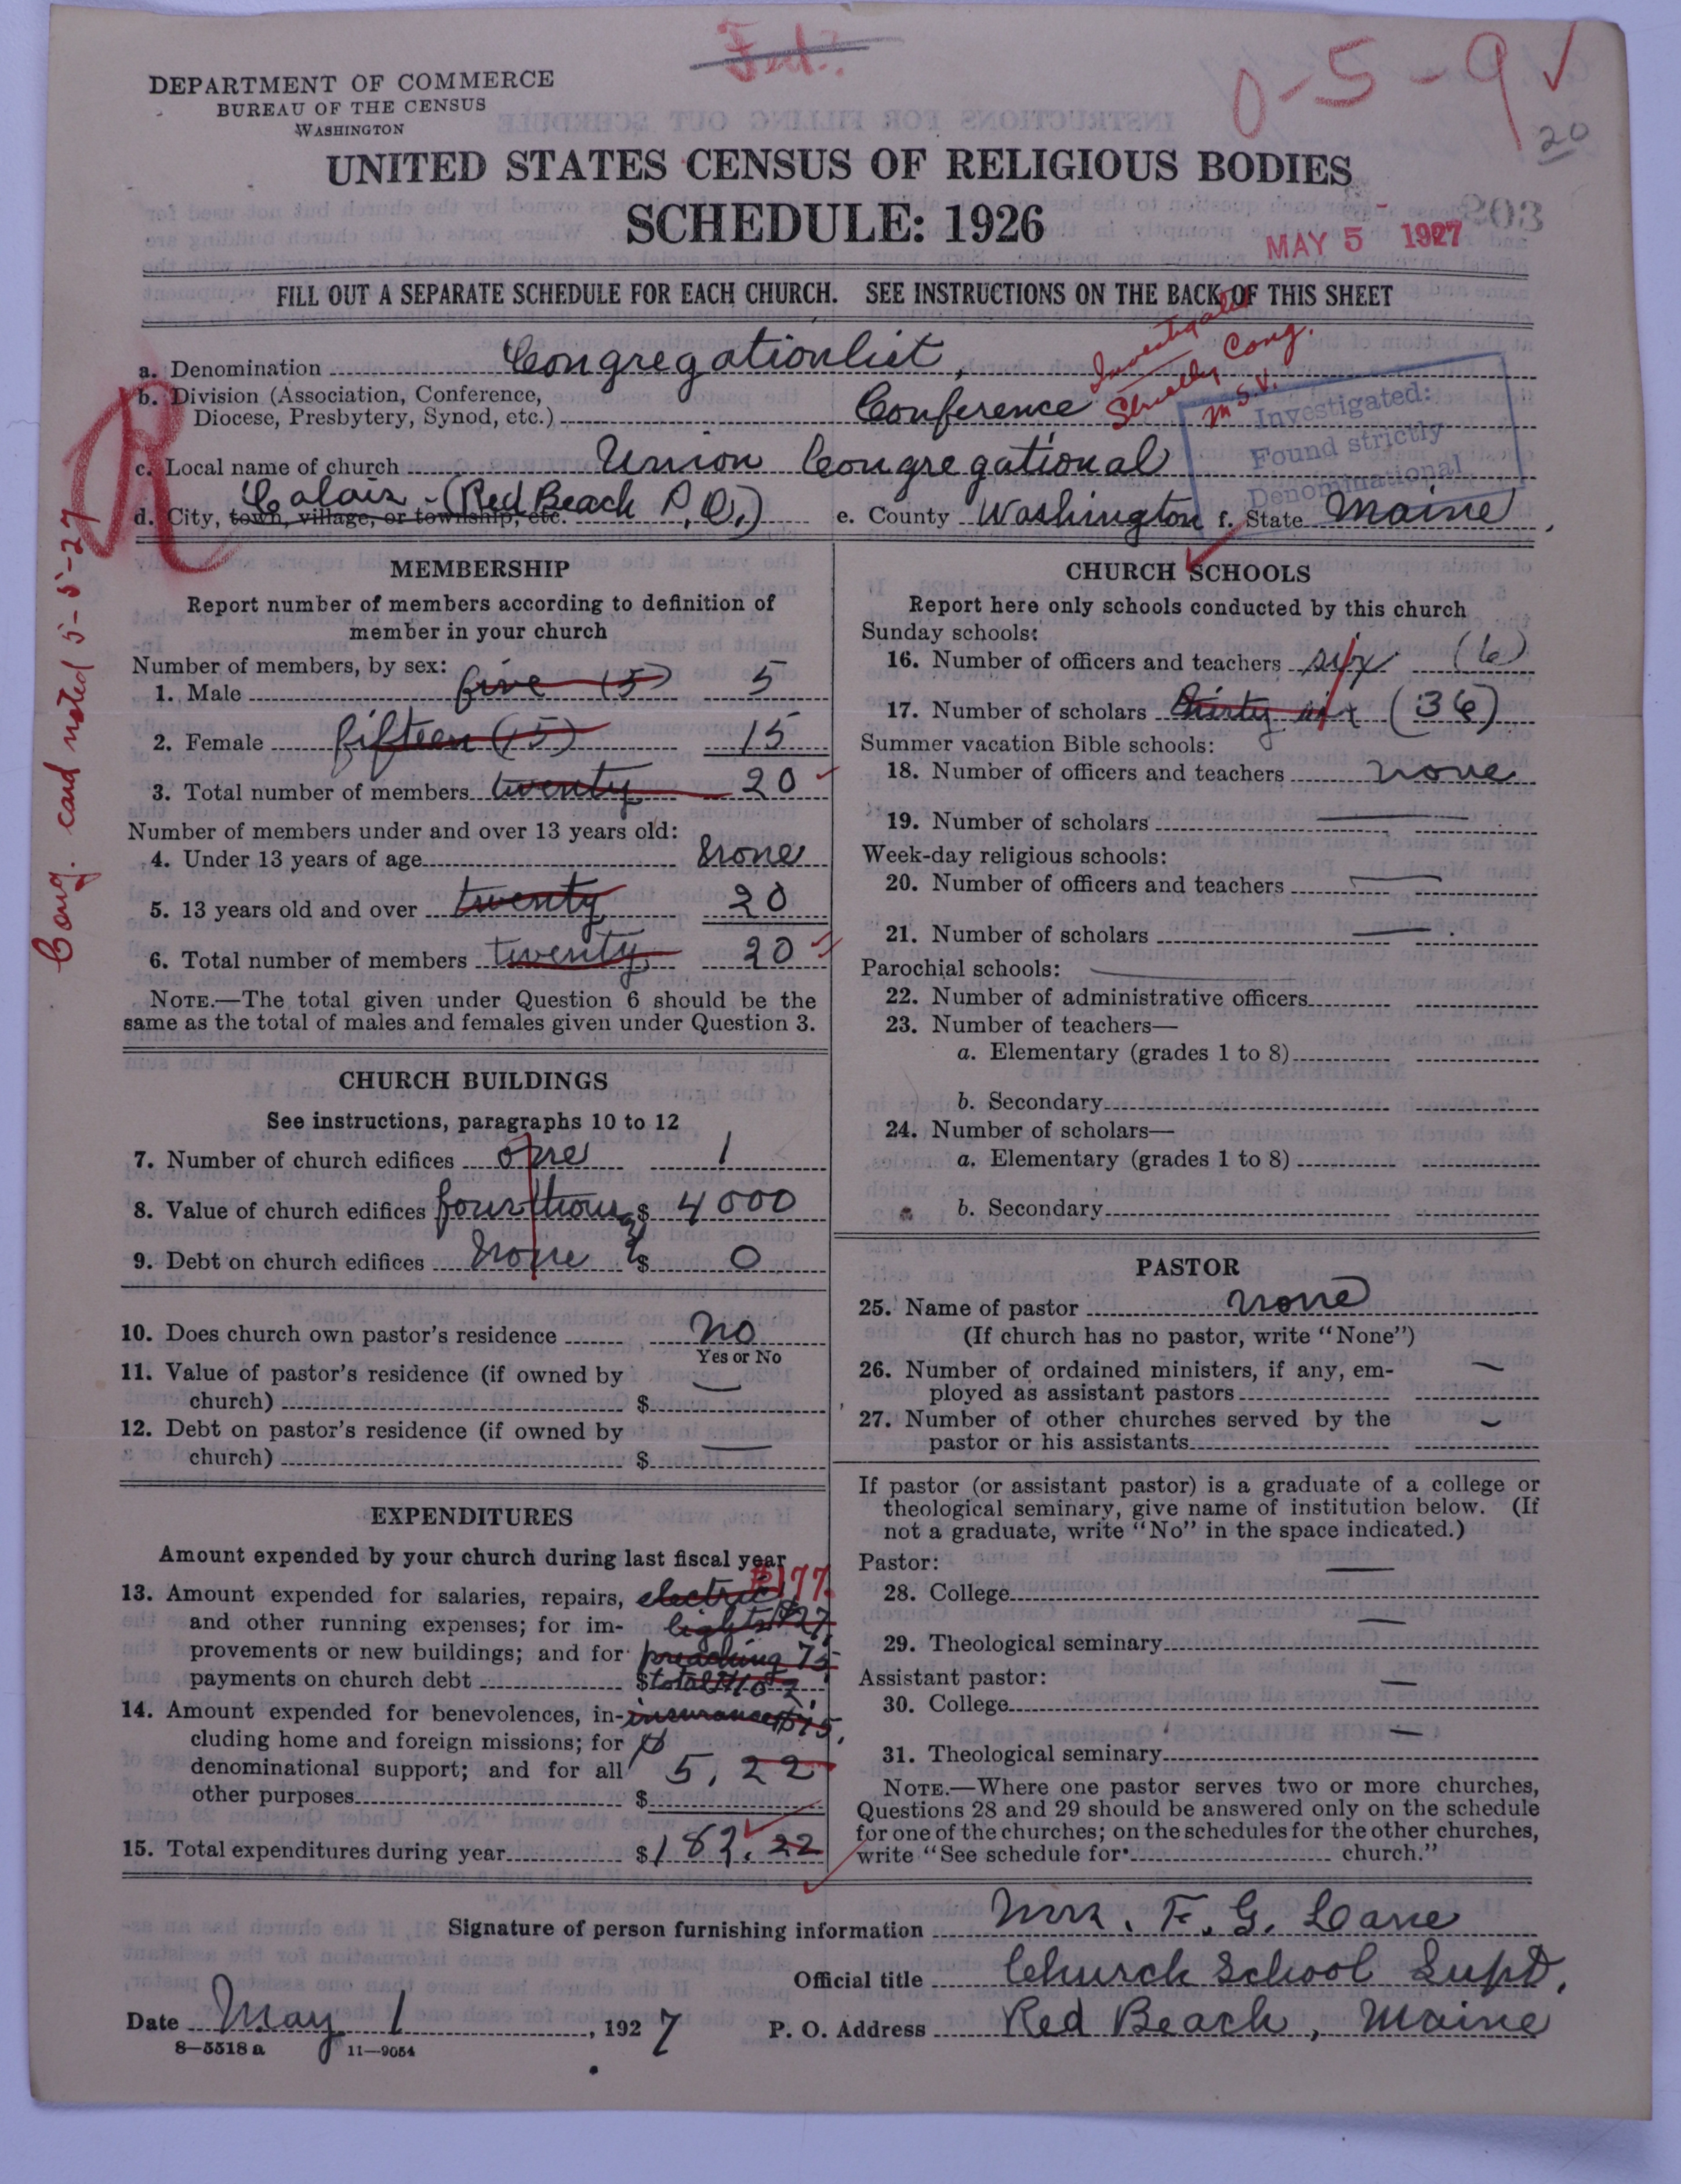 Fed.
0-5-9 ✓
20
DEPARTMENT OF COMMERCE
BUREAU OF THE CENSUS
WASHINGTON
UNITED STATES CENSUS OF RELIGIOUS BODIES
SCHEDULE: 1926
203
MAY 5 1927
FILL OUT A SEPARATE SCHEDULE FOR EACH CHURCH. SEE INSTRUCTIONS ON THE BACK OF THIS SHEET
a. Denomination Congregationlist,
Investigated
Strictly Cong.
M.S.V.
b. Division (Association, Conference,
Diocese, Presbytery, Synod, etc.) Conference
Investigated:
Found strictly
Denominational
c. Local name of church Union Congregational
d. City, town, village, or township, etc. Calais - (Red Beach P.O.) e. County Washington f. State Maine
R
Cong. card noted 5-5-27
MEMBERSHIP
Report number of members according to definition of
member in your church
Number of members, by sex:
1. Male five (5) 5
2. Female fifteen (15) 15
3. Total number of members twenty 20
Number of members under and over 13 years old:
4. Under 13 years of age None
5. 13 years old and over twenty 20
6. Total number of members twenty 20
NOTE.—The total given under Question 6 should be the
same as the total of males and females given under Question 3.
CHURCH BUILDINGS
See instructions, paragraphs 10 to 12
7. Number of church edifices one 1
8. Value of church edifices four thous $ 4000
9. Debt on church edifices None $ 0
10. Does church own pastor's residence No
Yes or No
11. Value of pastor's residence (if owned by
church) $
12. Debt on pastor's residence (if owned by
church) $
EXPENDITURES
Amount expended by your church during last fiscal year
$177.
13. Amount expended for salaries, repairs, electric
and other running expenses; for im- lights $27
provements or new buildings; and for preaching 75
payments on church debt $ total $102.
14. Amount expended for benevolences, in- insurance $75.
cluding home and foreign missions; for
denominational support; and for all 5.22
other purposes $
15. Total expenditures during year $182.22
CHURCH SCHOOLS
Report here only schools conducted by this church
Sunday schools:
16. Number of officers and teachers six (6)
17. Number of scholars thirty six (36)
Summer vacation Bible schools:
18. Number of officers and teachers none
19. Number of scholars
Week-day religious schools:
20. Number of officers and teachers
21. Number of scholars
Parochial schools:
22. Number of administrative officers
23. Number of teachers—
a. Elementary (grades 1 to 8)
b. Secondary
24. Number of scholars—
a. Elementary (grades 1 to 8)
b. Secondary
PASTOR
25. Name of pastor none
(If church has no pastor, write "None")
26. Number of ordained ministers, if any, em-
ployed as assistant pastors
27. Number of other churches served by the
pastor or his assistants
If pastor (or assistant pastor) is a graduate of a college or
theological seminary, give name of institution below. (If
not a graduate, write "No" in the space indicated.)
Pastor:
28. College
29. Theological seminary
Assistant pastor:
30. College
31. Theological seminary
NOTE.—Where one pastor serves two or more churches,
Questions 28 and 29 should be answered only on the schedule
for one of the churches; on the schedules for the other churches,
write "See schedule for church."
Signature of person furnishing information Mrs. F. G. Lane
Official title Church School Supt.
Date May 1, 1927 P. O. Address Red Beach, Maine
8-5518 a 11-9054